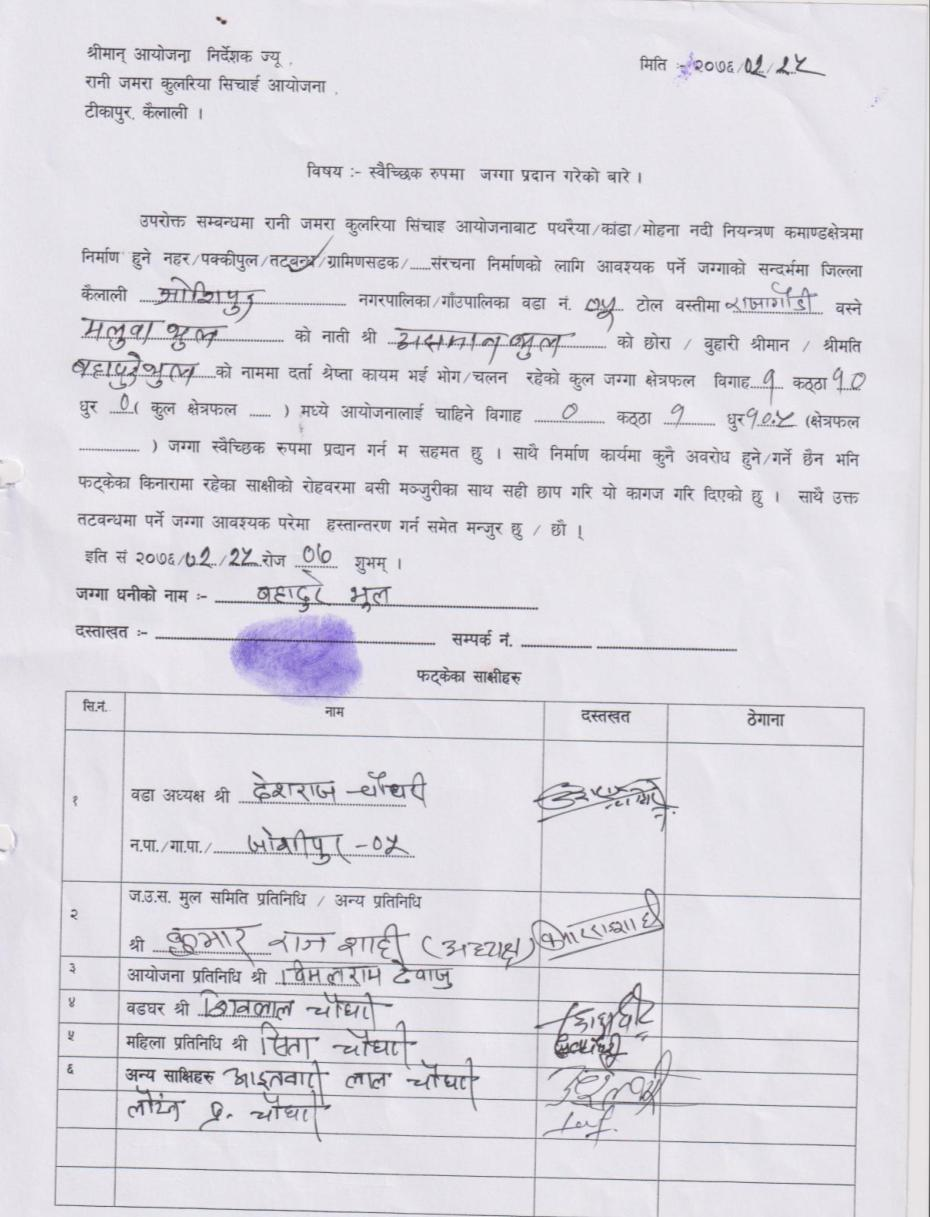 श्रीमान् आयोजना निर्देशक ज्यू ,
मिति :- २०७६/०२/२५
रानी जमरा कुलरिया सिचाई आयोजना ,
टीकापुर, कैलाली ।
विषय :- स्वैच्छिक रुपमा जग्गा प्रदान गरेको बारे ।
उपरोक्त सम्बन्धमा रानी जमरा कुलरिया सिंचाइ आयोजनाबाट पथरैया/कांडा/मोहना नदी नियन्त्रण कमाण्डक्षेत्रमा
निर्माण हुने नहर/पक्कीपुल/तटबन्ध/ग्रामिणसडक/......संरचना निर्माणको लागि आवश्यक पर्ने जग्गाको सन्दर्भमा जिल्ला
कैलाली जोशिपुर नगरपालिका/गाँउपालिका वडा नं. ०५ टोल वस्तीमा वस्ने
मलुवा भुल को नाती श्री असमान भुल को छोरा / बुहारी श्रीमान / श्रीमति
बहादुरे भुल को नाममा दर्ता श्रेष्ता कायम भई भोग/चलन रहेको कुल जग्गा क्षेत्रफल विगाह १ कठ्ठा १०
धुर ०( कुल क्षेत्रफल ...... ) मध्ये आयोजनालाई चाहिने विगाह ० कठ्ठा १ धुर १०.५ (क्षेत्रफल
................ ) जग्गा स्वैच्छिक रुपमा प्रदान गर्न म सहमत छु । साथै निर्माण कार्यमा कुनै अवरोध हुने/गर्ने छैन भनि
फट्केका किनारामा रहेका साक्षीको रोहवरमा वसी मञ्जुरीका साथ सही छाप गरि यो कागज गरि दिएको छु । साथै उक्त
तटवन्धमा पर्ने जग्गा आवश्यक परेमा हस्तान्तरण गर्न समेत मन्जुर छु / छौ ।
इति सं २०७६/०२/२५ रोज ०७ शुभम् ।
जग्गा धनीको नाम :- बहादुरे भुल
दस्ताखत :- सम्पर्क नं.
फट्केका साक्षीहरु
सि.नं. नाम दस्तखत ठेगाना
१ वडा अध्यक्ष श्री देशराज चौधरी
न.पा./गा.पा./ जोशीपुर -०५
२ ज.उ.स. मुल समिति प्रतिनिधि / अन्य प्रतिनिधि
श्री कुमार राज शाही (अध्यक्ष)
३ आयोजना प्रतिनिधि श्री विमलराम देवाजु
४ वडघर श्री शिवलाल चौधरी
५ महिला प्रतिनिधि श्री सिता चौधरी
६ अन्य साक्षिहरु आइतवारी लाल चौधरी
प्र. चौधरी